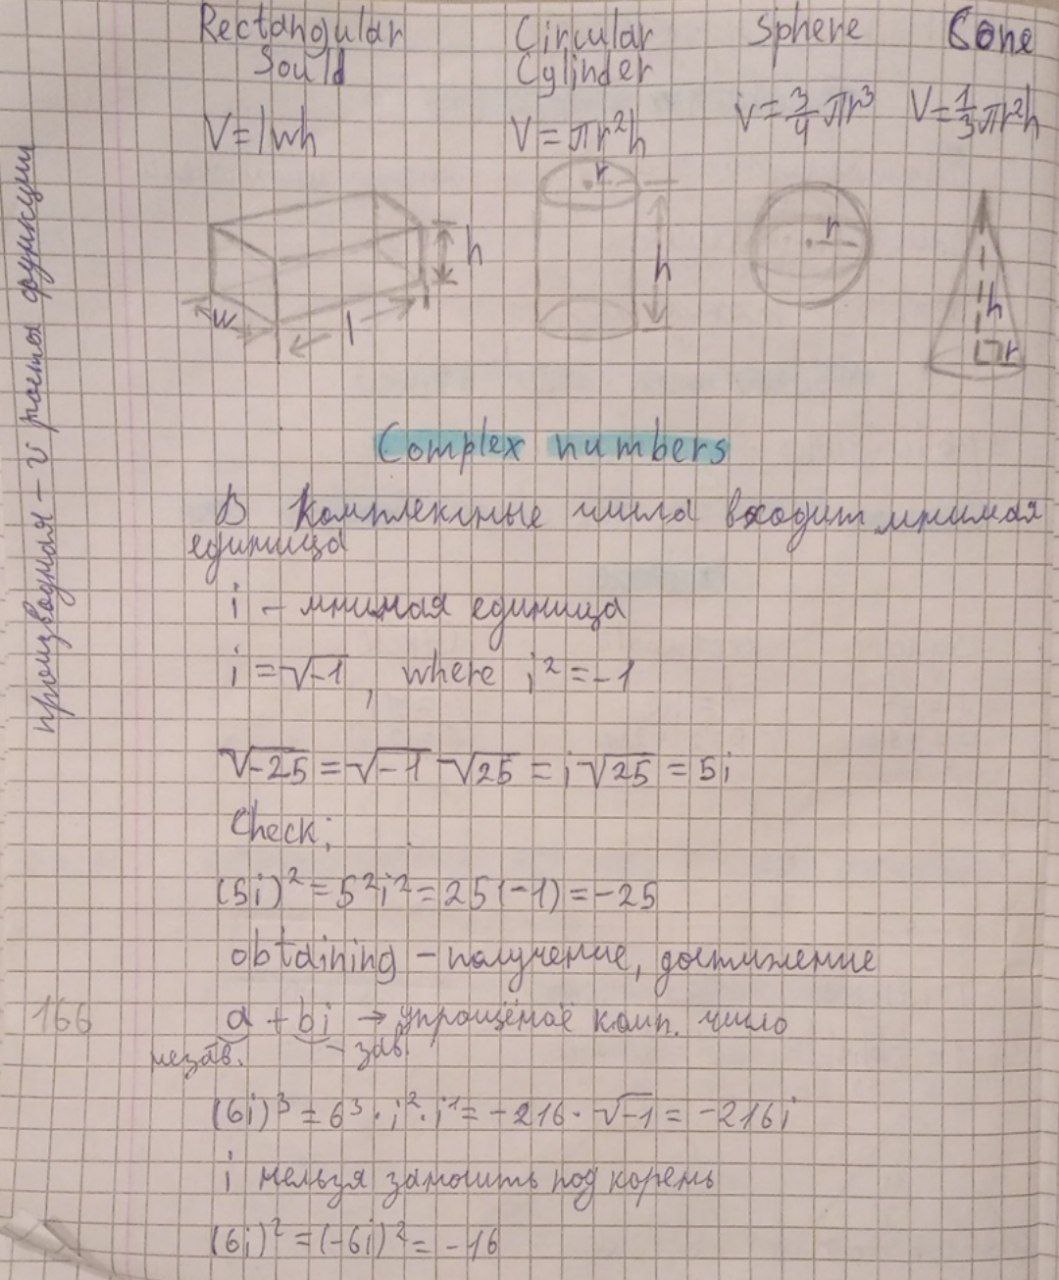 Rectangular Circular Sphere Cone
Sould Cylinder
V=lwh V=πr²h V=3/4 πr³ V=1/3 πr²h
r
h h r h
w l r
производная – v роста функции
Complex numbers
В комплексные числа входит мнимая
единица
i – мнимая единица
i=√-1, where i²=-1
√-25=√-1 √25=i√25=5i
Check;
(5i)²=5²i²=25(-1)=-25
obtaining – получение, достижение
166 a+bi → упрощёное комп. число
незав. – зав.
(6i)³=6³·i²·i¹=-216·√-1=-216i
i нельзя заносить под корень
(6i)²=(-6i)²=-16